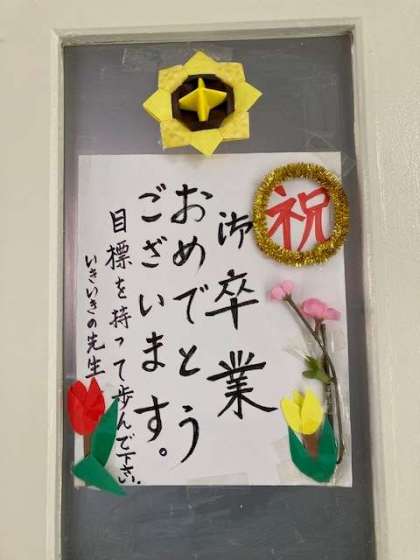 祝
御卒業
おめでとう
ございます。
目標を持って歩んで下さい。
いきいきの先生